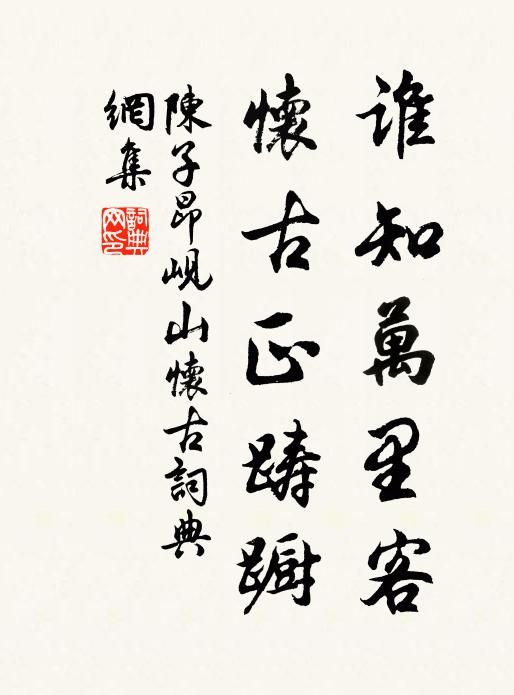 誰知萬里客
懷古正躊躕
陳子昂峴山懷古詞典
網集
詞典
网印